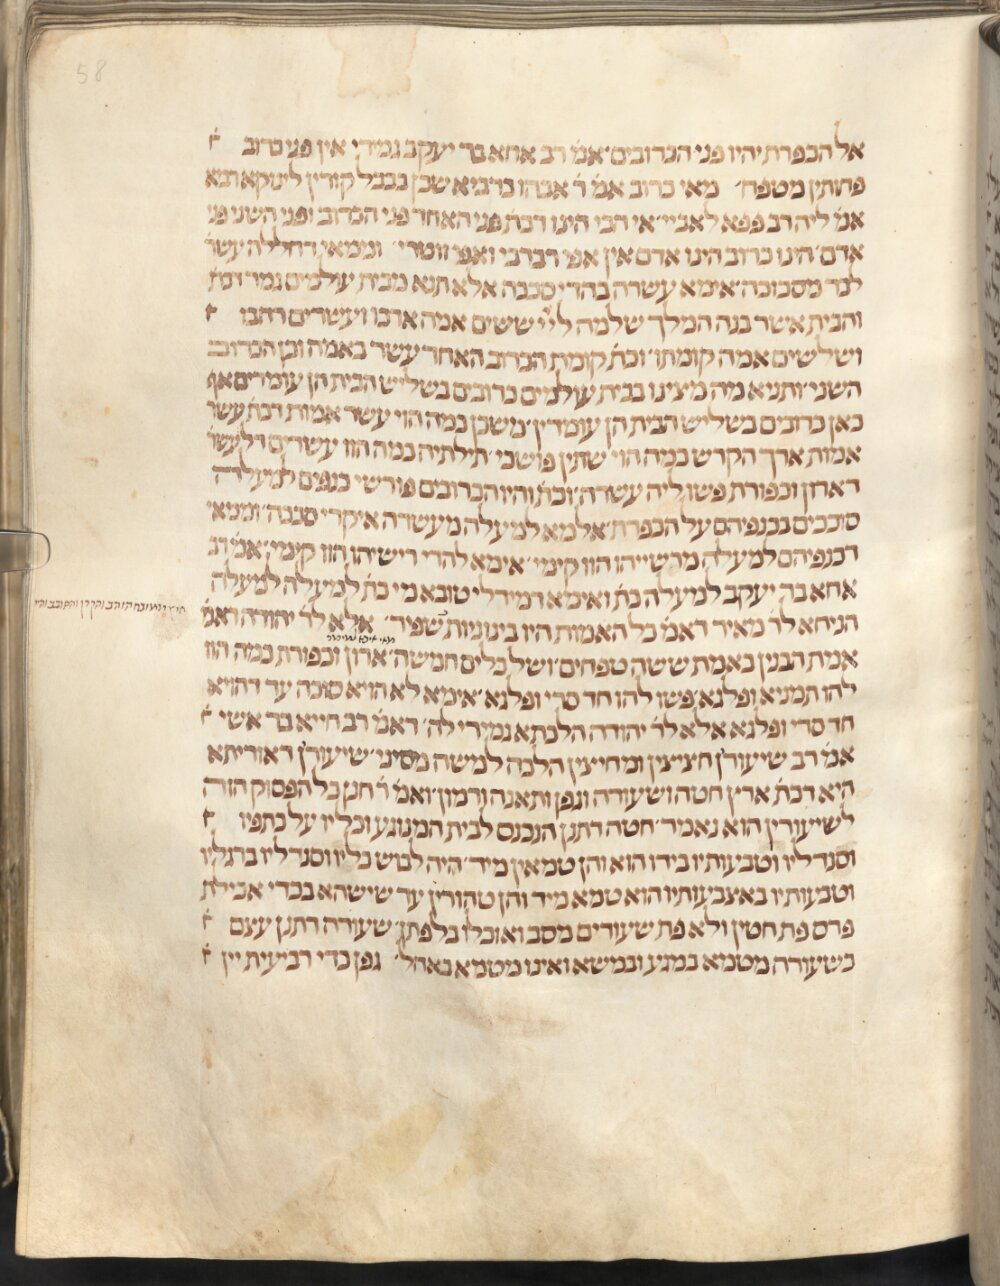 58
אל הכפרת יהיו פני הכרובים׳ אמ׳ רב אחא בר יעקב גמירי אין פני כרוב
פחותין מטפח׳ מאי כרוב אמ׳ ר׳ אבהו כרביא שכן בבבל קורין לינוקא רביא
אמ׳ ליה רב פפא לאביי׳ אי הכי היינו דכת׳ פני האחד פני הכרוב ופני השני פני
אדם׳ הינו כרוב הינו אדם אין אפי רברבי ואפי זוטרי׳ וממאי דחללה עשר
לבר מסככה׳ אימא עשרה בהדי סככה אלא תנא מבית עולמים גמר דכת׳
והבית אשר בנה המלך שלמה לייי ששים אמה ארכו ועשרים רחבו
ושלשים אמה קומתו׳ וכת׳ קומת הכרוב האחד עשר באמה וכן הכרוב
השני׳ ותניא מה מצינו בבית עולמים כרובים בשליש הבית הן עומדים אף
כאן כרובים בשליש הבית הן עומדין׳ משכן כמה הוי עשר אמות דכת׳ עשר
אמות ארך הקרש כמה הוי׳ שתין פושכי׳ תילתיה כמה הוו עשרים דל עשר
דארון וכפורת פשו ליה עשרה׳ וכת׳ והיו הכרובים פורשי כנפים למעלה
סוככים בכנפיהם על הכפרת׳ אלמא למעלה מעשרה איקרי סככה׳ וממאי
דכנפיהם למעלה מרשייהו הוו קימי׳ אימא להדי רישיהו הוו קימי׳ אמ׳ רב
אחא בר יעקב למעלה כת׳ ואימא דמידלי טובא מי כת׳ למעלה למעלה
הניחא לר׳ מאיר דאמ׳ כל האמות היו בינוניות שפיר׳ אלא לר׳ יהודה דאמ׳
מאי איכא למימר
אמת הבנין באמת ששה טפחים׳ ושל כלים חמשה׳ ארון וכפורת כמה הוו
להו תמניא ופלגא׳ פשו להו חד סרי ופלגא׳ אימא לא הויא סוכה עד דהויא
חד סרי ופלגא אלא לר׳ יהודה הלכתא גמירי לה׳ דאמ׳ רב חייא בר אשי
אמ׳ רב שיעורן חציצין ומחיצין הלכה למשה מסיני׳ שיעורין דאוריתא
היא דכת׳ ארץ חטה ושעורה וגפן ותאנה ורמון׳ ואמ׳ ר׳ חנן כל הפסוק הזה
לשיעורין הוא נאמר׳ חטה דתנן הנכנס לבית המנוגע וכליו על כתפיו
וסנדליו וטבעותיו בידו הוא והן טמאין מיד׳ היה לבוש כליו וסנדליו ברגליו
וטבעותיו באצבעותיו הוא טמא מיד והן טהורין עד שישהא בכדי אכילת
פרס פת חטין ולא פת שעורים מסב ואוכלו בלפתן׳ שעורה דתנן עצם
כשעורה מטמא במגע ובמשא ואינו מטמא באהל׳ גפן כדי רביעית יין